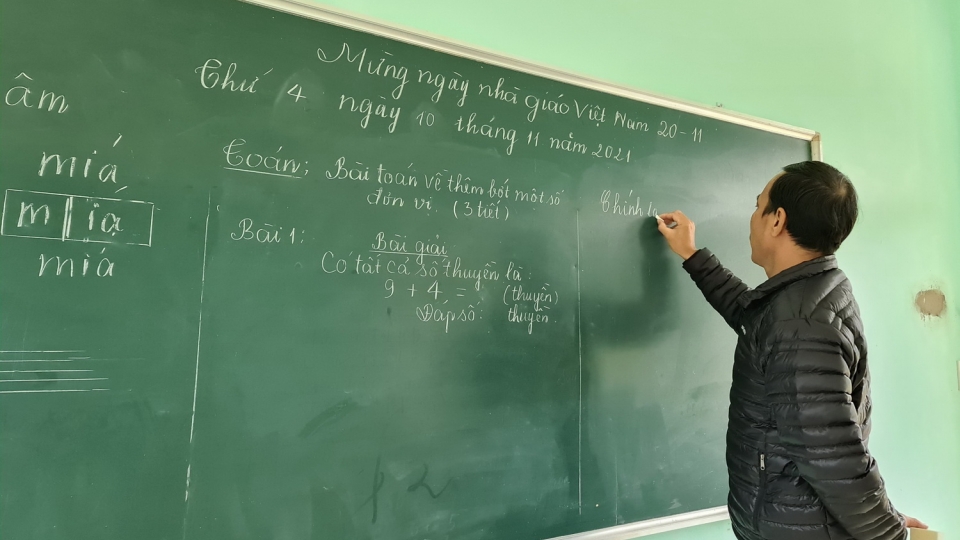 Mừng ngày nhà giáo Việt Nam 20-11
Thứ 4 ngày 10 tháng 11 năm 2021
âm
mía
m ía
mía
Toán: Bài toán về thêm bớt một số
đơn vị. (3 tiết)
Bài 1:
Bài giải
Có tất cả số thuyền là:
9 + 4 = (thuyền)
Đáp số: thuyền.
Chính